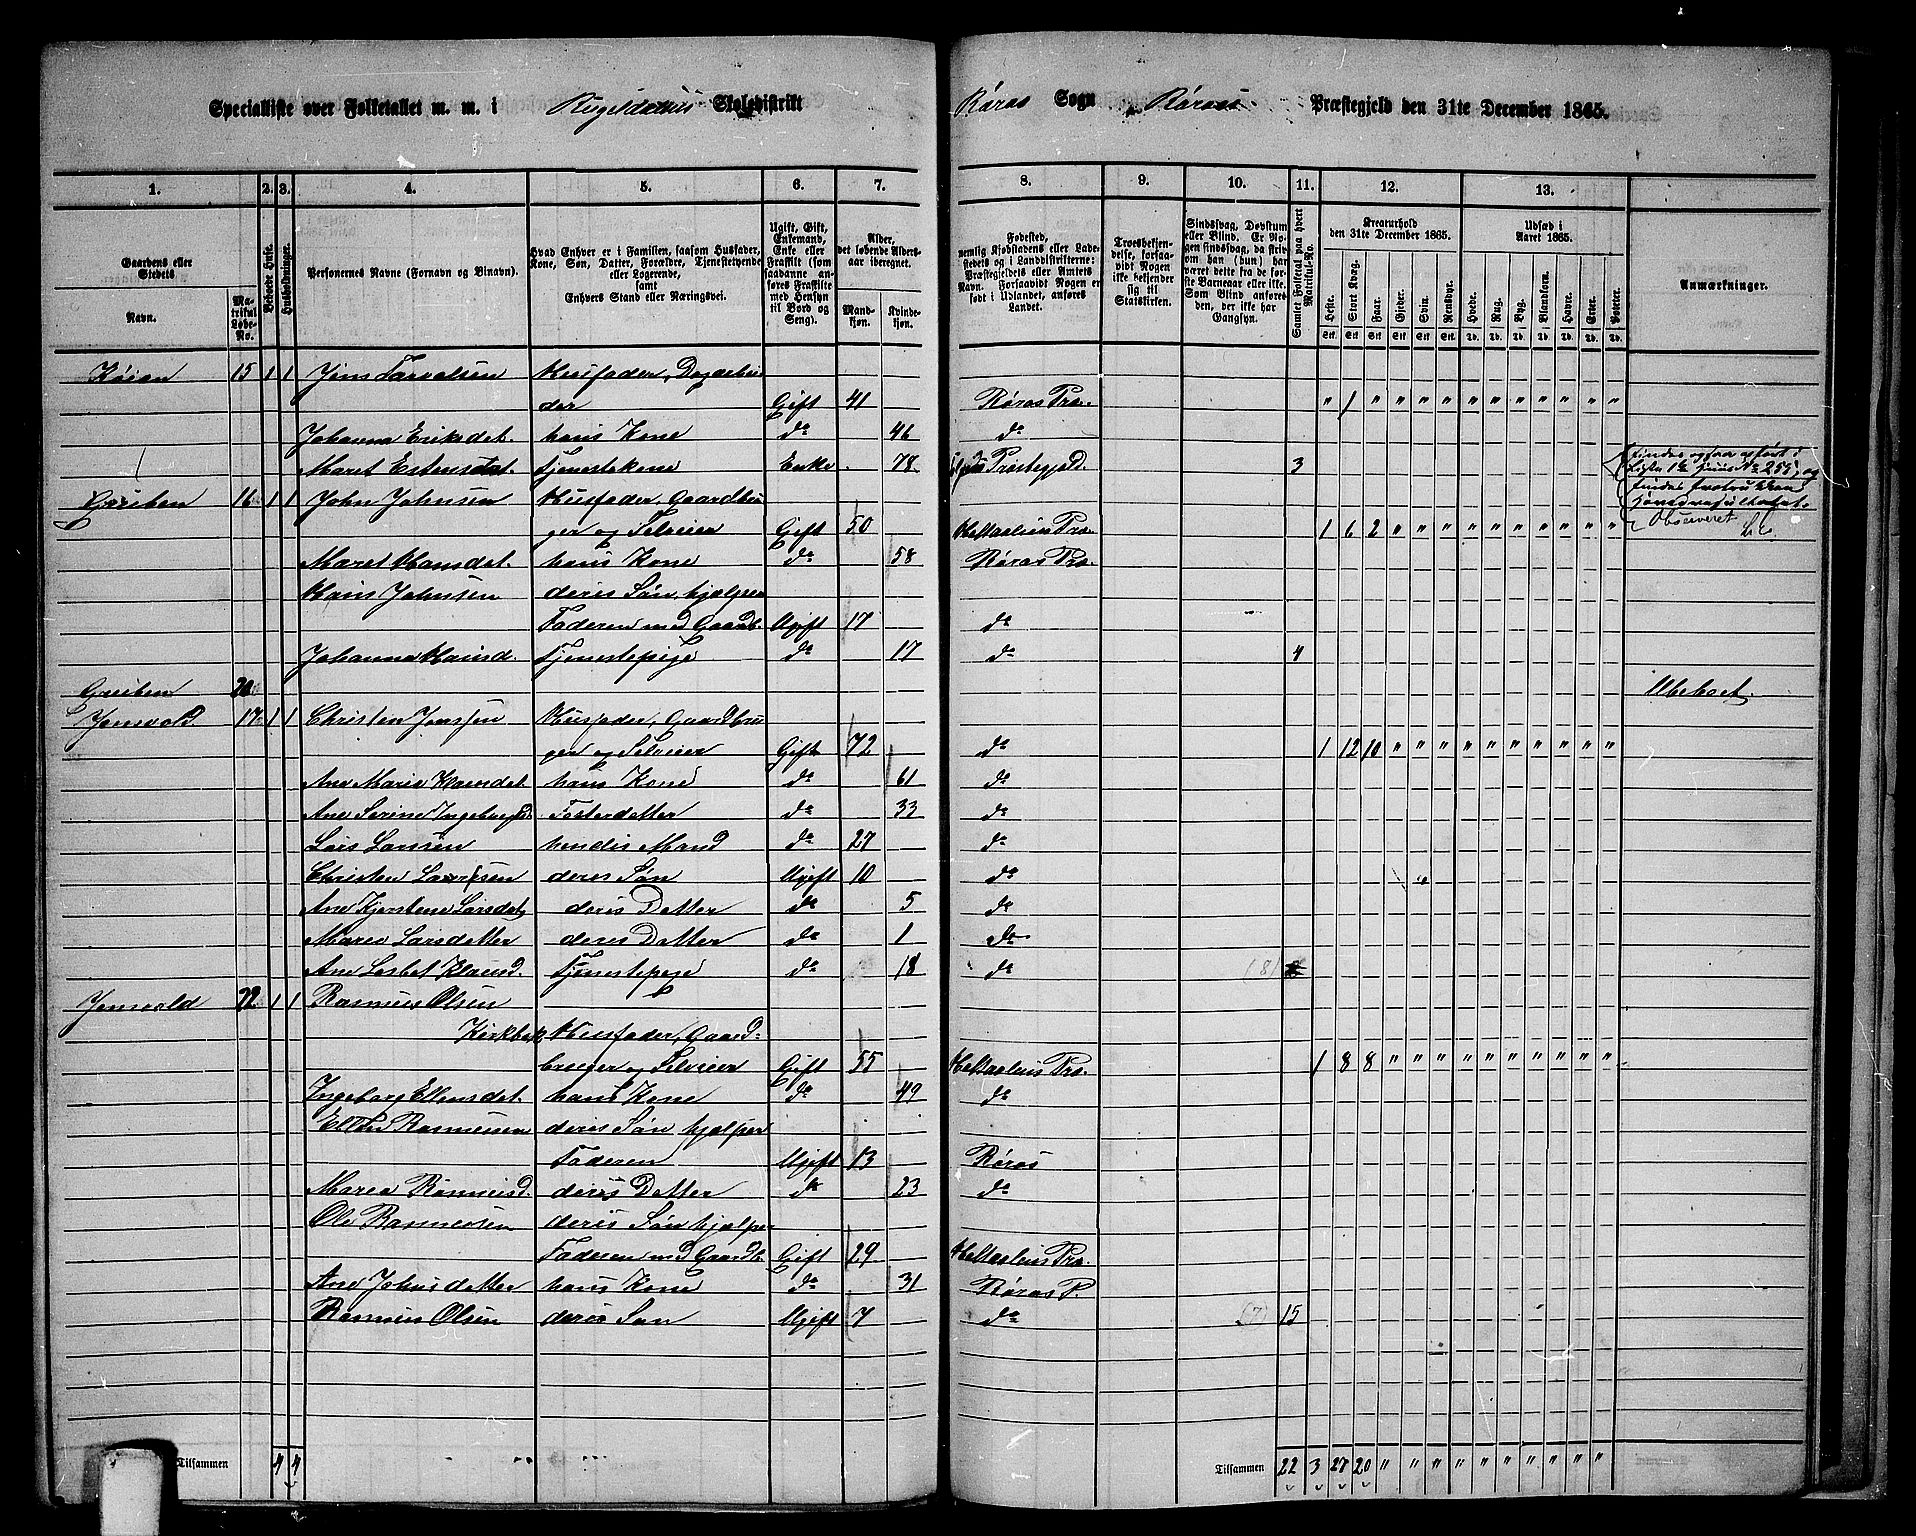 Specialliste over Folketallet m. m. i Rugeldalens Skoledistrikt Røros Sogn Røros Præstegjeld den 31te December 1865.
1. 2. 3. 4. 5. 6. 7. 8. 9. 10. 11. 12. 13.
Gaardens eller Stedets
Navn.
Matrikul Løbe-No.
Bebøede Huse.
Husholdninger.
Personernes Navne (Fornavn og Binavn).
Hvad Enhver er i Familien, saasom Husfader, Kone, Søn, Datter, Forældre, Tjenestetyende eller Logerende,
samt
Enhvers Stand eller Næringsvei.
Ugift, Gift, Enkemand, Enke eller Fraskilt (som saadanne anføres Fraskilte med Hensyn til Bord og Seng).
Alder, det løbende Alders-aar iberegnet.
Mandkjøn. Kvindekjøn.
Fødested, nemlig Kjøbstadens eller Ladestedets og i Landdistrikterne: Præstegjeldets eller Amtets Navn. Forsaavidt Nogen er født i Udlandet, anføres Landet.
Troesbekjendelse, forsaavidt Nogen ikke bekjender sig til Statskirken.
Sindssvag, Døvstum eller Blind. Er Nogen sindssvag, da skrives om han (hun) har været dette fra de første Barneaar eller ikke. Som Blind anføres den, der ikke har Gangsyn.
Samlet Folketal paa hvert Matrikul-No.
Kreaturhold den 31te December 1865.
Heste. Stort Kvæg. Faar. Gjeder. Sviin. Rensdyr.
Udsæd i Aaret 1865.
Hvede. Rug. Byg. Blandkorn. Havre. Erter. Poteter.
Anmærkninger.
Køien 15 1 1 Jens Tarvalsen Husfader, Dagarbei
der Gift 41 Røros Præ. " 1 " " " " " " " " " " "
Johanna Eriksdat. hans Kone dº 46 dº
Maret Estensdat. Tjenestekone Enke 78 Præstegjæld. 3
Grieben 16 1 1 John Johnsen Husfader, Gaardbru
ger og Selveier Gift 50 Holtaalens Præ. 1 6 2 " " " " " " " " " "
Observeret
Maret Hansdat. hans Kone dº 58 Røros Præ.
Hans Johnsen deris Søn, hjælper
Faderen med Gaardb. Ugift 17 dº
Johanna Hansd. Tjenestepige dº 17 dº 4
Grieben 20 Ubeboet.
Jensvold 17 1 1 Christen Jenssen Husfader, Gaardbru
ger og Selveier Gift 72 dº 1 12 10 " " " " " " " " " "
Ane Marie Hansdat. hans Kone dº 61 dº
Ane Serine Ingebregtsd. Fosterdatter dº 33 dº
Lars Larssen hendes Mand dº 27 dº
Christen Larssen deres Søn Ugift 10 dº
Ane Kjerstene Larsdat. deris Datter dº 5 dº
Maren Larsdatter deres Datter dº 1 dº
Ane Lesbet Klausd. Tjenestepige dº 18 dº (8)
Jensvold 22 1 1 Rasmus Olsen
Kirkbak Husfader, Gaard-
bruger og Selveier Gift 55 Holtaalens Præ. 1 8 8 " " " " " " " " " "
Ingeborg Ellensdat. hans Kone dº 49 dº
Ellen Rasmussen deris Søn, hjælper
Faderen Ugift 13 Røros
Maren Rasmusd. deris Datter dº 23 dº
Ole Rasmussen deris Søn hjælper
Faderen med Gaardb. Gift 29 Holtaalens Præ.
Ane Johnsdatter hans Kone dº 31 Røros P.
Rasmus Olsen deris Søn Ugift 7 dº (7) 15
Tilsammen 4 4 " " Tilsammen 22 3 27 20 " " " " " " " " "